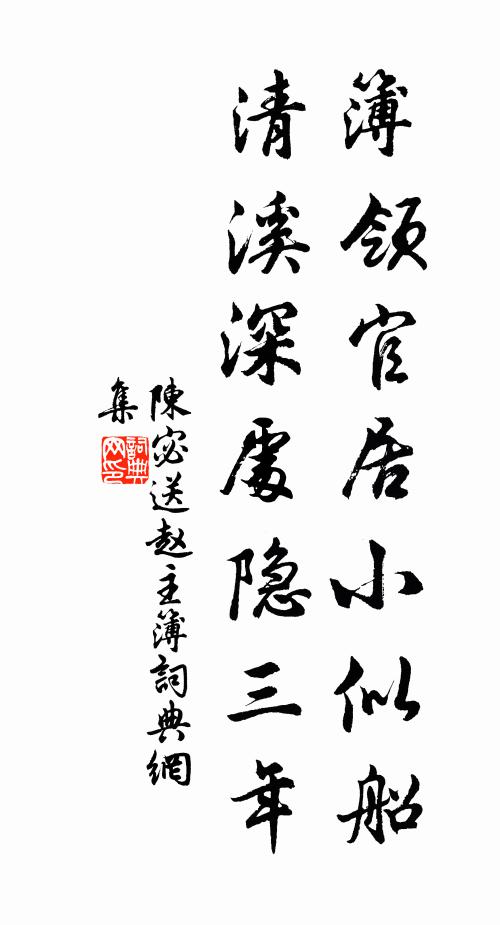 簿領官居小似船
清溪深處隱三年
陳宓送赵主簿詞典網
集
詞典
网印